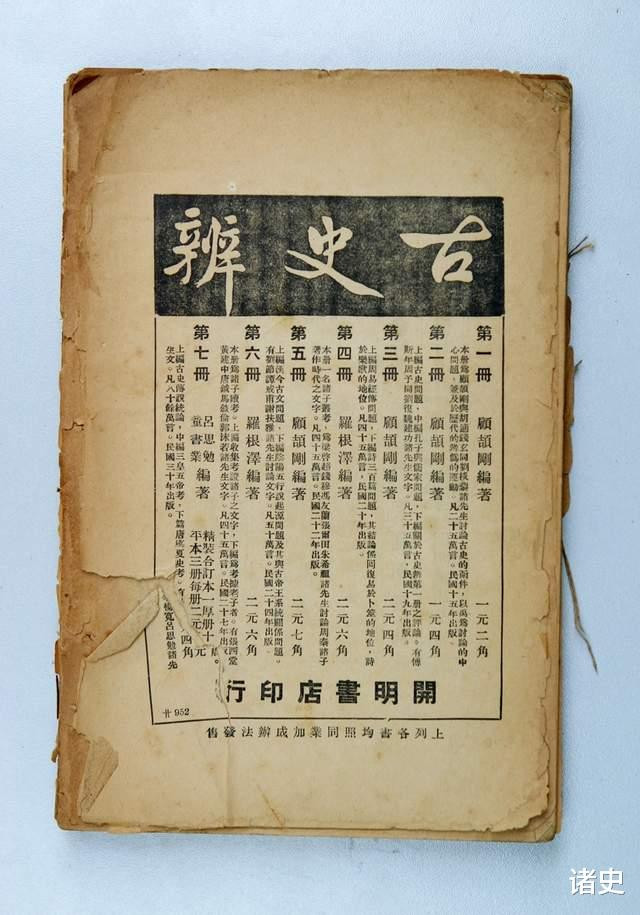 古史辨
第一冊　顧頡剛編著　一元二角
本册爲顧頡剛與胡適錢玄同劉掞藜諸先生討論古史的函件，以禹爲討論的中
心問題，兼及於歷代的辨僞的運動。凡二十五萬言。民國十五年出版。
第二冊　顧頡剛編著　一元四角
上編古史問題，中編孔子與儒家問題，下編關於古史辨第一册之評論。有傅
斯年周予同劉復魏建功諸先生文字。凡三十五萬言，民國十九年出版。
第三冊　顧頡剛編著　二元四角
上編周易經傳問題，下編詩三百篇問題，其結論係囘復易於卜筮的地位，詩
於樂歌的地位。凡四十五萬言，民國二十年出版。
第四冊　羅根澤編著　二元六角
本册一名諸子叢考，爲梁啓超錢穆馮友蘭張爾田朱希祖諸先生討論周秦諸子
著作時代之文字。凡四十五萬言。民國二十二年出版。
第五冊　顧頡剛編著　二元七角
上編漢今古文問題，下編陰陽五行說起源問題及其與古帝王系統關係問題。
有劉節譚戒甫謝扶雅諸先生討論文字。凡五十萬言。民國二十四年出版。
第六冊　羅根澤編著　二元六角
本册爲諸子續考。上編收集考證諸子之文字，下編爲考據老子者。有張西堂
黃建中唐鉞馬叙倫郭沫若諸先生文字。凡四十五萬言。民國二十七年出版
第七冊　呂思勉　童書業　編著　精裝合訂本一厚册十　元　平本三册每册二元　四角
上編古史傳說統論，中編三皇五帝考，下篇唐虞夏史考。有　楊寬呂思勉諸先
生文。凡八十餘萬言。民國三十年出版。
開明書店印行
952
上列各書均照同業加成辦法發售
诸史